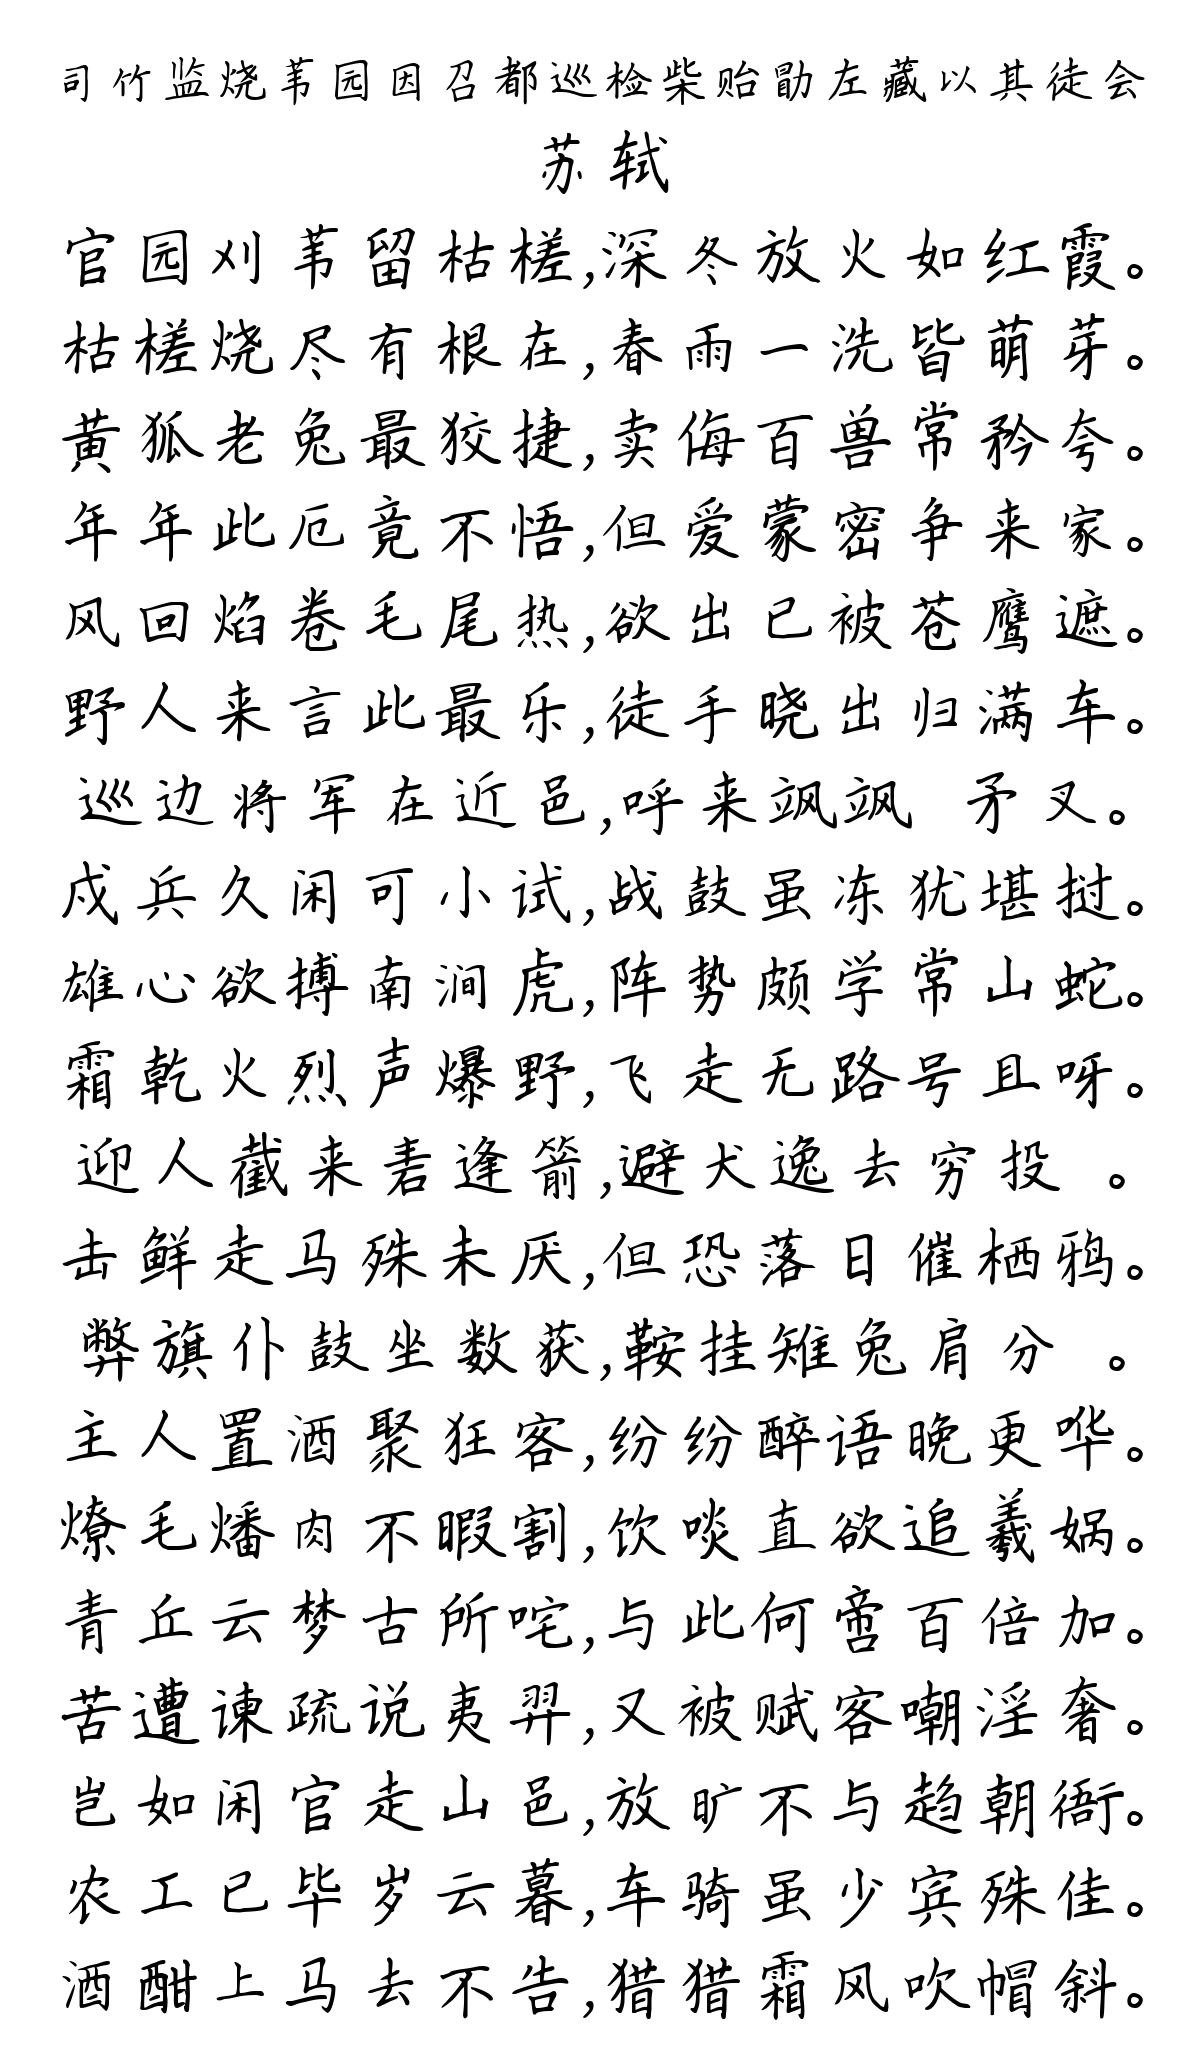 司竹监烧苇园因召都巡检柴贻勖左藏以其徒会
苏轼
官园刈苇留枯槎,深冬放火如红霞。
枯槎烧尽有根在,春雨一洗皆萌芽。
黄狐老兔最狡捷,卖侮百兽常矜夸。
年年此厄竟不悟,但爱蒙密争来家。
风回焰卷毛尾热,欲出已被苍鹰遮。
野人来言此最乐,徒手晓出归满车。
巡边将军在近邑,呼来飒飒 矛叉。
戍兵久闲可小试,战鼓虽冻犹堪挝。
雄心欲搏南涧虎,阵势颇学常山蛇。
霜乾火烈声爆野,飞走无路号且呀。
迎人截来砉逢箭,避犬逸去穷投 。
击鲜走马殊未厌,但恐落日催栖鸦。
弊旗仆鼓坐数获,鞍挂雉兔肩分 。
主人置酒聚狂客,纷纷醉语晚更哗。
燎毛燔肉不暇割,饮啖直欲追羲娲。
青丘云梦古所咤,与此何啻百倍加。
苦遭谏疏说夷羿,又被赋客嘲淫奢。
岂如闲官走山邑,放旷不与趋朝衙。
农工已毕岁云暮,车骑虽少宾殊佳。
酒酣上马去不告,猎猎霜风吹帽斜。